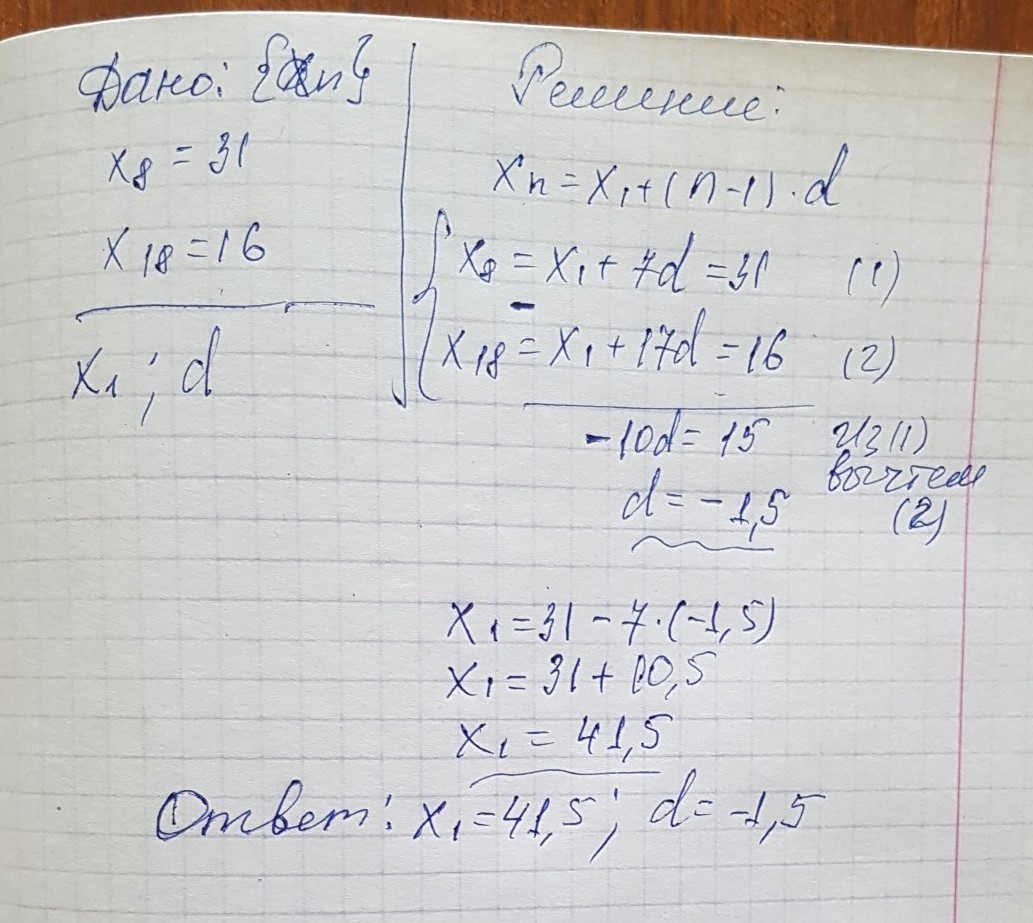 Дано: {xn}
x8 = 31
x18 = 16
x1 ; d
Решение:
xn = x1 + (n-1) · d
x8 = x1 + 7d = 31 (1)
-
x18 = x1 + 17d = 16 (2)
-10d = 15 из (1)
вычтем
d = -1,5 (2)
x1 = 31 - 7·(-1,5)
x1 = 31 + 10,5
x1 = 41,5
Ответ: x1 = 41,5 ; d = -1,5